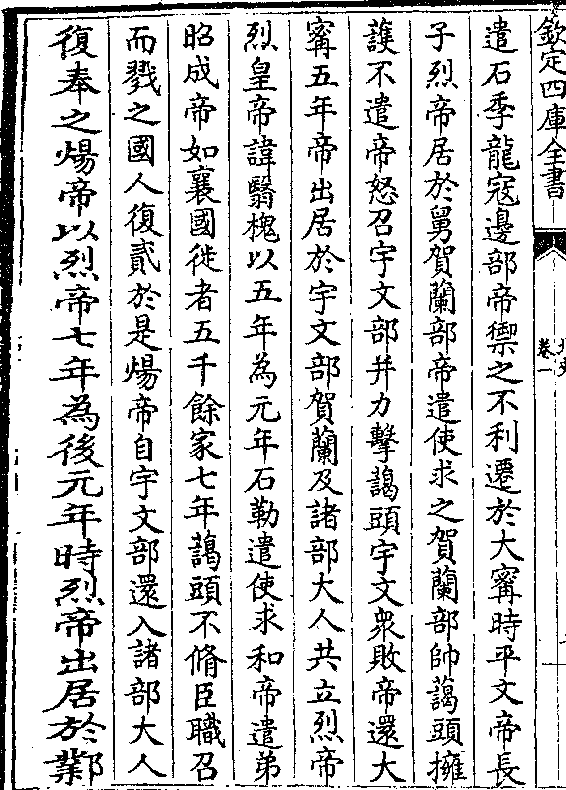 欽定四庫全書
卷一
遣石季龍寇邊部帝禦之不利遷於大甯時平文帝長
子烈帝居於舅賀蘭部帝遣使求之賀蘭部帥藹頭擁
護不遣帝怒召宇文部并力擊藹頭宇文衆敗帝還大
甯五年帝出居於宇文部賀蘭及諸部大人共立烈帝
烈皇帝諱翳槐以五年為元年石勒遣使求和帝遣弟
昭成帝如襄國徙者五千餘家七年藹頭不脩臣職召
而戮之國人復貳於是煬帝自宇文部還入諸部大人
復奉之煬帝以烈帝七年為後元年時烈帝出居於鄴